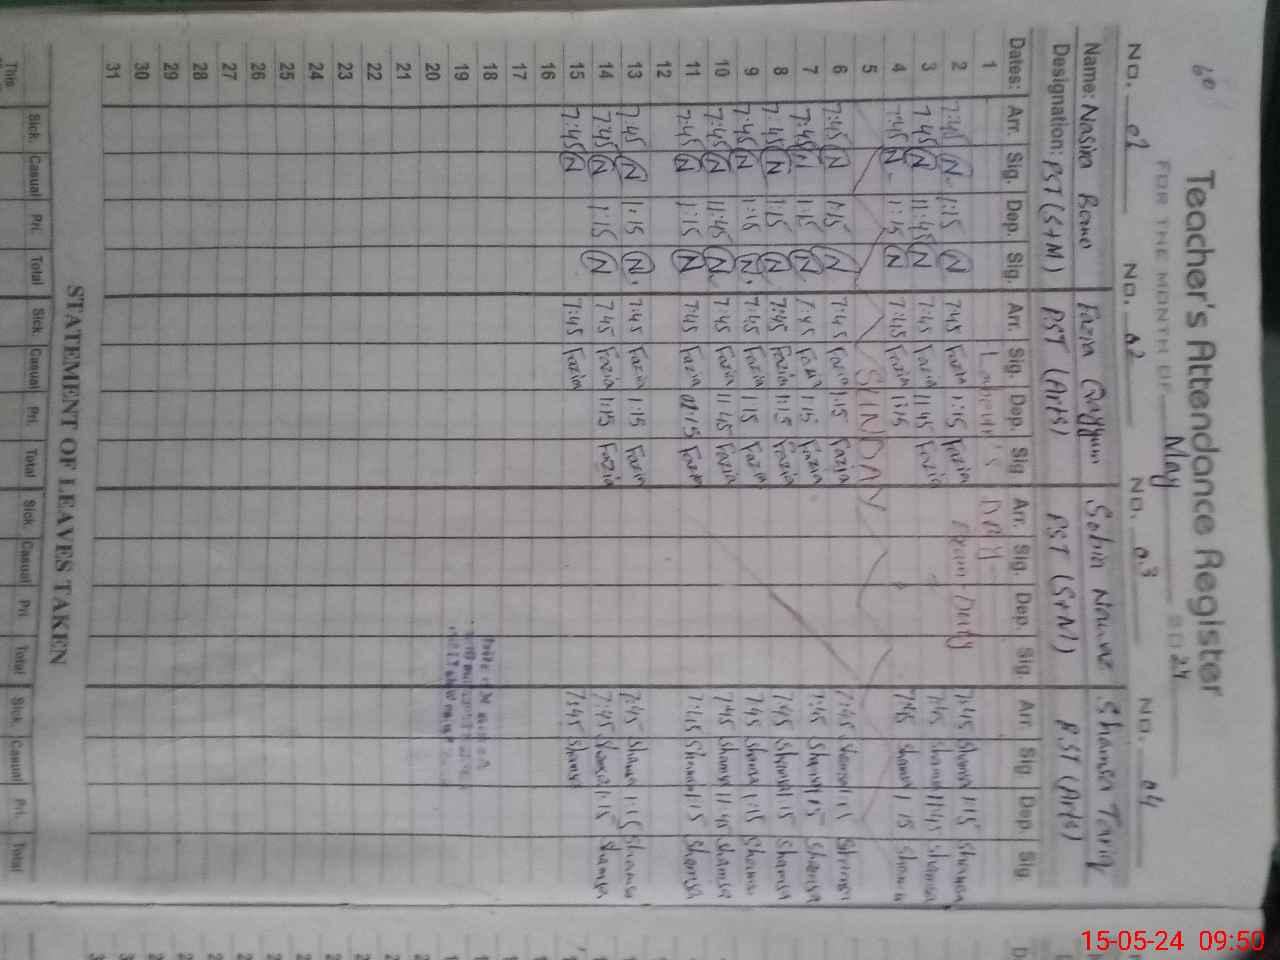 60
Teacher's Attendance Register
FOR THE MONTH OF May 2024
No. 01 No. 02 No. 03 No. 04
Name: Nasira Bano Fazia Qayyum Sobia Nawaz Shamsa Tariq
Designation: PST (S+M) PST (Arts) PST (S+M) PST (Arts)
Dates: Arr. Sig. Dep. Sig. Arr. Sig. Dep. Sig. Arr. Sig. Dep. Sig. Arr. Sig. Dep. Sig.
1 Labour's DAY
2 7:45 N 1:15 N 7:45 Fazia 1:15 Fazia Exam Duty 7:45 Shamsa 1:15 Shamsa
3 7:45 N 11:45 N 7:45 Fazia 11:45 Fazia 7:45 Shamsa 11:45 Shamsa
4 7:45 N 1:15 N 7:45 Fazia 1:15 7:45 Shamsa 1:15 Shamsa
5 SUNDAY
6 7:45 N 1:15 N 7:45 Fazia 1:15 Fazia 7:45 Shamsa 1:15 Shamsa
7 7:45 N 1:15 N 7:45 Fazia 1:15 Fazia 7:45 Shamsa 1:15 Shamsa
8 7:45 N 1:15 N 7:45 Fazia 1:15 Fazia 7:45 Shamsa 1:15 Shamsa
9 7:45 N 1:15 N 7:45 Fazia 1:15 Fazia 7:45 Shamsa 1:15 Shamsa
10 7:45 N 11:45 N 7:45 Fazia 11:45 Fazia 7:45 Shamsa 11:45 Shamsa
11 7:45 N 1:15 N 7:45 Fazia 1:15 Fazia 7:45 Shamsa 1:15 Shamsa
12
13 7:45 N 1:15 N 7:45 Fazia 1:15 Fazia 7:45 Shamsa 1:15 Shamsa
14 7:45 N 1:15 N 7:45 Fazia 1:15 Fazia 7:45 Shamsa 1:15 Shamsa
15 7:45 N 7:45 Fazia 7:45 Shamsa
16
17
18
19
20
21
22
23
24
25
26
27
28
29
30
31
STATEMENT OF LEAVES TAKEN
Sick Casual Pri. Total Sick Casual Pri. Total Sick Casual Pri. Total Sick Casual Pri. Total
This
15-05-24 09:50